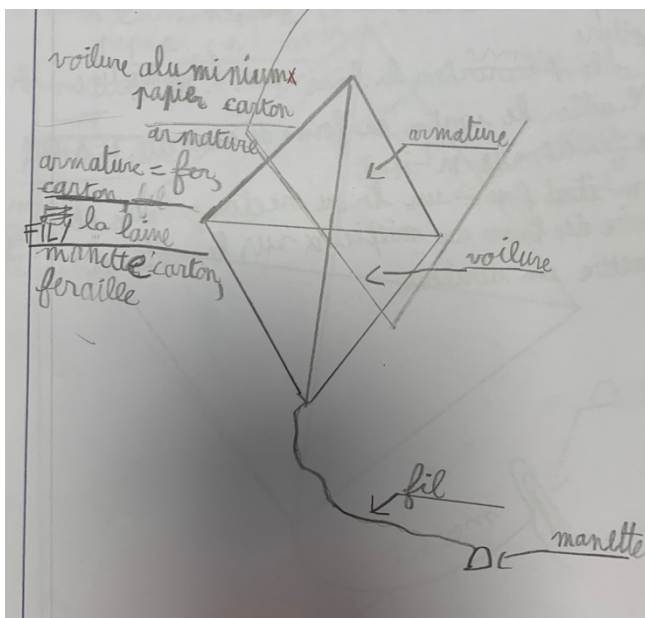 voilure aluminium
papier carton
armature
armature = fer,
carton
FIL/ la laine
manette carton,
feraille
armature
voilure
fil
manette